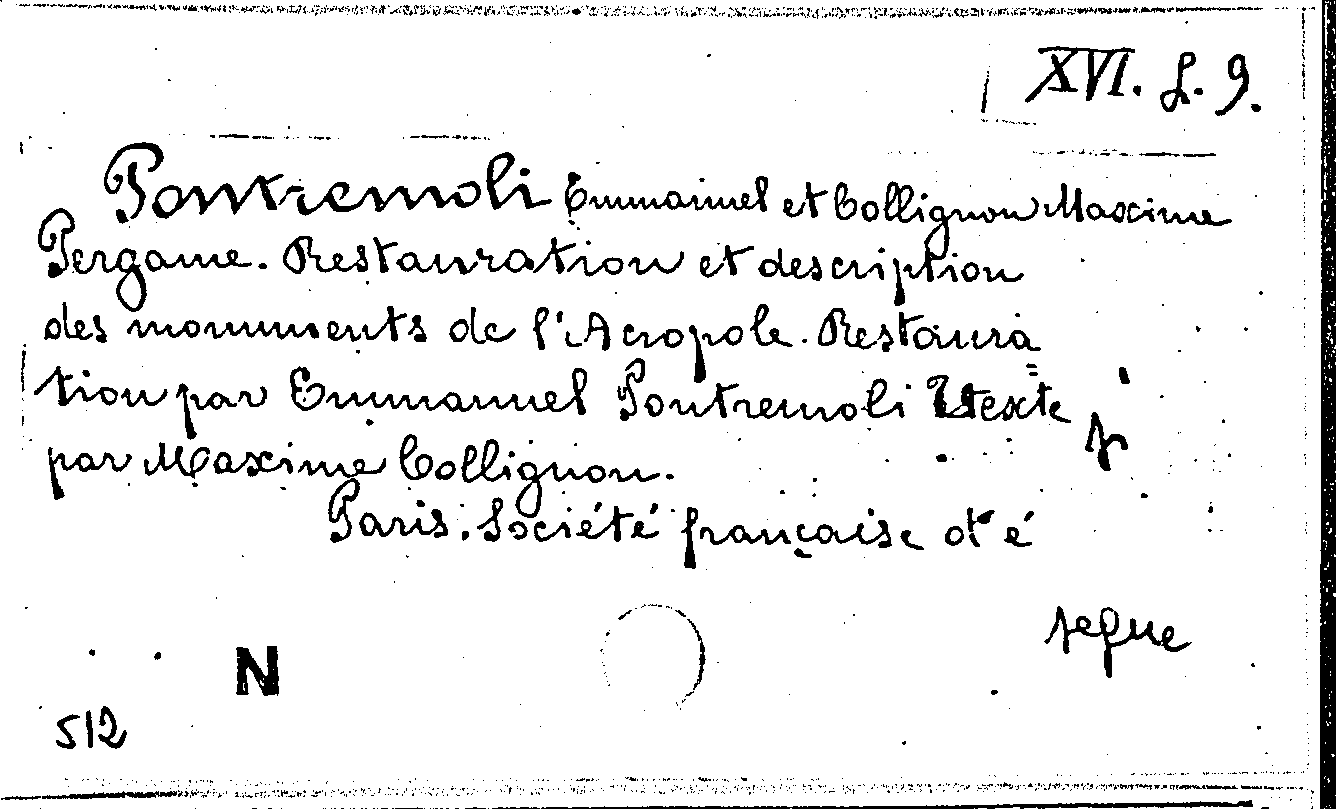 XVI. L. 9.
Pontremoli Emmanuel et Collignon Maxime
Pergame. Restauration et description
des monuments de l'Acropole. Restaura=
tion par Emmanuel Pontremoli Texte
par Maxime Collignon.
Paris. Société française d'é
segue
N
512